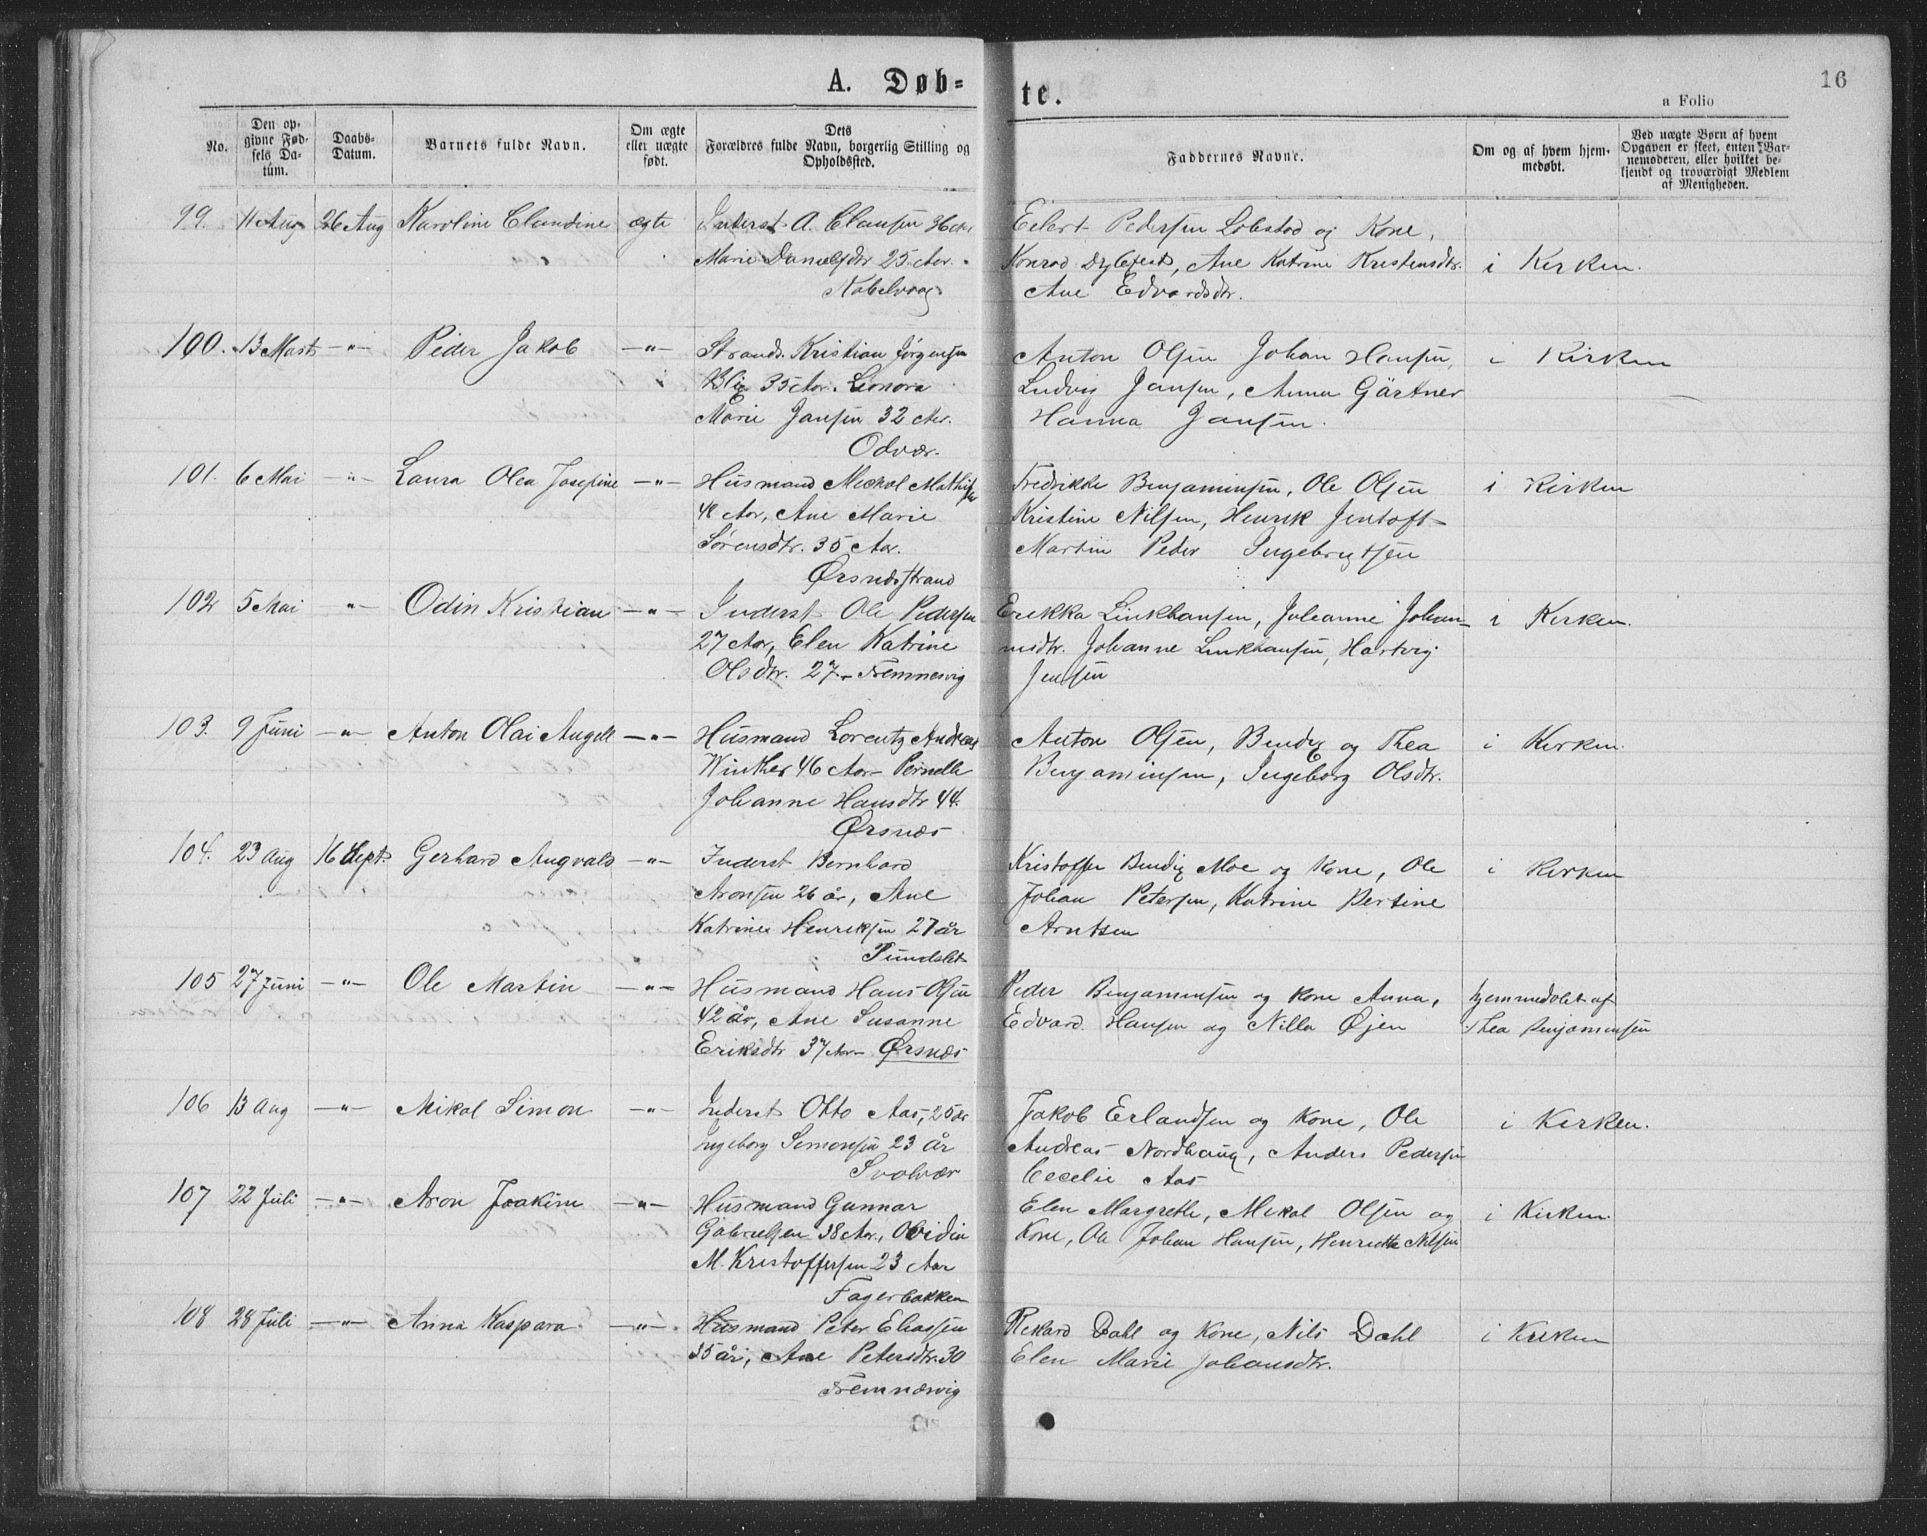 A. Døbte.
16
a Folio
No.
Den opgivne Fødsels Datum.
Daabs-Datum.
Barnets fulde Navn.
Om ægte eller uægte født.
Dets Forældres fulde Navn, borgerlig Stilling og Opholdssted.
Faddernes Navne.
Om og af hvem hjemmedøbt.
Ved uægte Børn af hvem Opgaven er skeet, enten Barnemoderen, eller hvilket bekjendt og troværdigt Medlem af Menigheden.
99. 11 Aug 26 Aug Karoline Claudine ægte Inderst A. Clausen 36 Aar
Marie Danielsdtr 25 Aar.
Kabelvaag
Eilert Pedersen Lobstad og Kone,
Konrad Dybfest, Ane Katrine Kristensdtr.
Ane Edvardsdtr.
i Kirken.
100. 13 Marts -"- Peder Jakob -"- Strands. Kristian Jørgensen
Blix 35 Aar. Leonora
Marie Jansen 32 Aar.
Odvær.
Anton Olsen Johan Hansen,
Ludvig Jansen, Anna Gärtner
Hanna Jansen.
i Kirken
101. 6 Mai -"- Laura Olea Josefine -"- Husmand Mechal Mathisen
41 Aar, Ane Marie
Sørensdtr. 35 Aar.
Ørsnæsstrand
Fredrikke Benjaminsen, Ole Olsen
Kristine Nilsen, Henrik Jentoft
Martin Peder Ingebrigtsen
i Kirken
102 5 Mai -"- Odin Kristian -"- Inderst Ole Pedersen
27 Aar, Elen Katrine
Olsdtr. 27 - Fremnesvig
Erikka Linkhausen, Juleanne Johan-
nsdtr. Johanne Linkhausen, Hartvig
Jensen
i Kirken.
103. 9 Juni -"- Anton Olai Angell -"- Husmand Lorentz Andreas
Winther 46 Aar - Pernelle
Johanne Hansdtr 44.
Ørsnæs
Anton Olsen, Bendix og Thea
Benjaminsen, Ingeborg Olsdtr.
i Kirken.
104. 23 Aug 16 Sept. Gerhard Angvald -"- Inderst Bernhard
Aronsen 26 år, Ane
Katrine Henriksen 27 år
Pundslet
Kristoffer Bendix Moe og Kone, Ole
Johan Petersen, Katrine Bertine
Arntsen
i Kirken
105 27 Juni -"- Ole Martin -"- Husmand Hans Olsen
42 år, Ane Susanne
Eriksdtr 37 Aar - Ørsnæs
Peder Benjaminsen og Kone Anna,
Edvard Hansen og Nilla Øjen
hjemmedøbt af
Thea Benjaminsen
106 13 Aug -"- Mikal Simon -"- Inderst Otto Aas, 25 år
Ingeborg Simonsen 23 år
Svolvær
Jakob Erlandsen og Kone, Ole
Andreas Nordhaug, Anders Pedersen
Cecelie Aas
i Kirken.
107 22 Juli -"- Aron Joakim -"- Husmand Gunnar
Gabrielsen 38 Aar, Ovidia
M. Kristoffersen 23 Aar
Fagerbakken
Elen Margrethe, Mikal Olsen og
Kone, Ole Johan Hansen, Henriette Nilsen
i Kirken.
108 28 Juli -"- Anna Kaspara -"- Husmand Peter Eliassen
35 år, Ane Petersdtr. 30
Fremnæsvig
Rikard Dahl og Kone, Nils Dahl
Elen Marie Johansdtr.
i Kirken